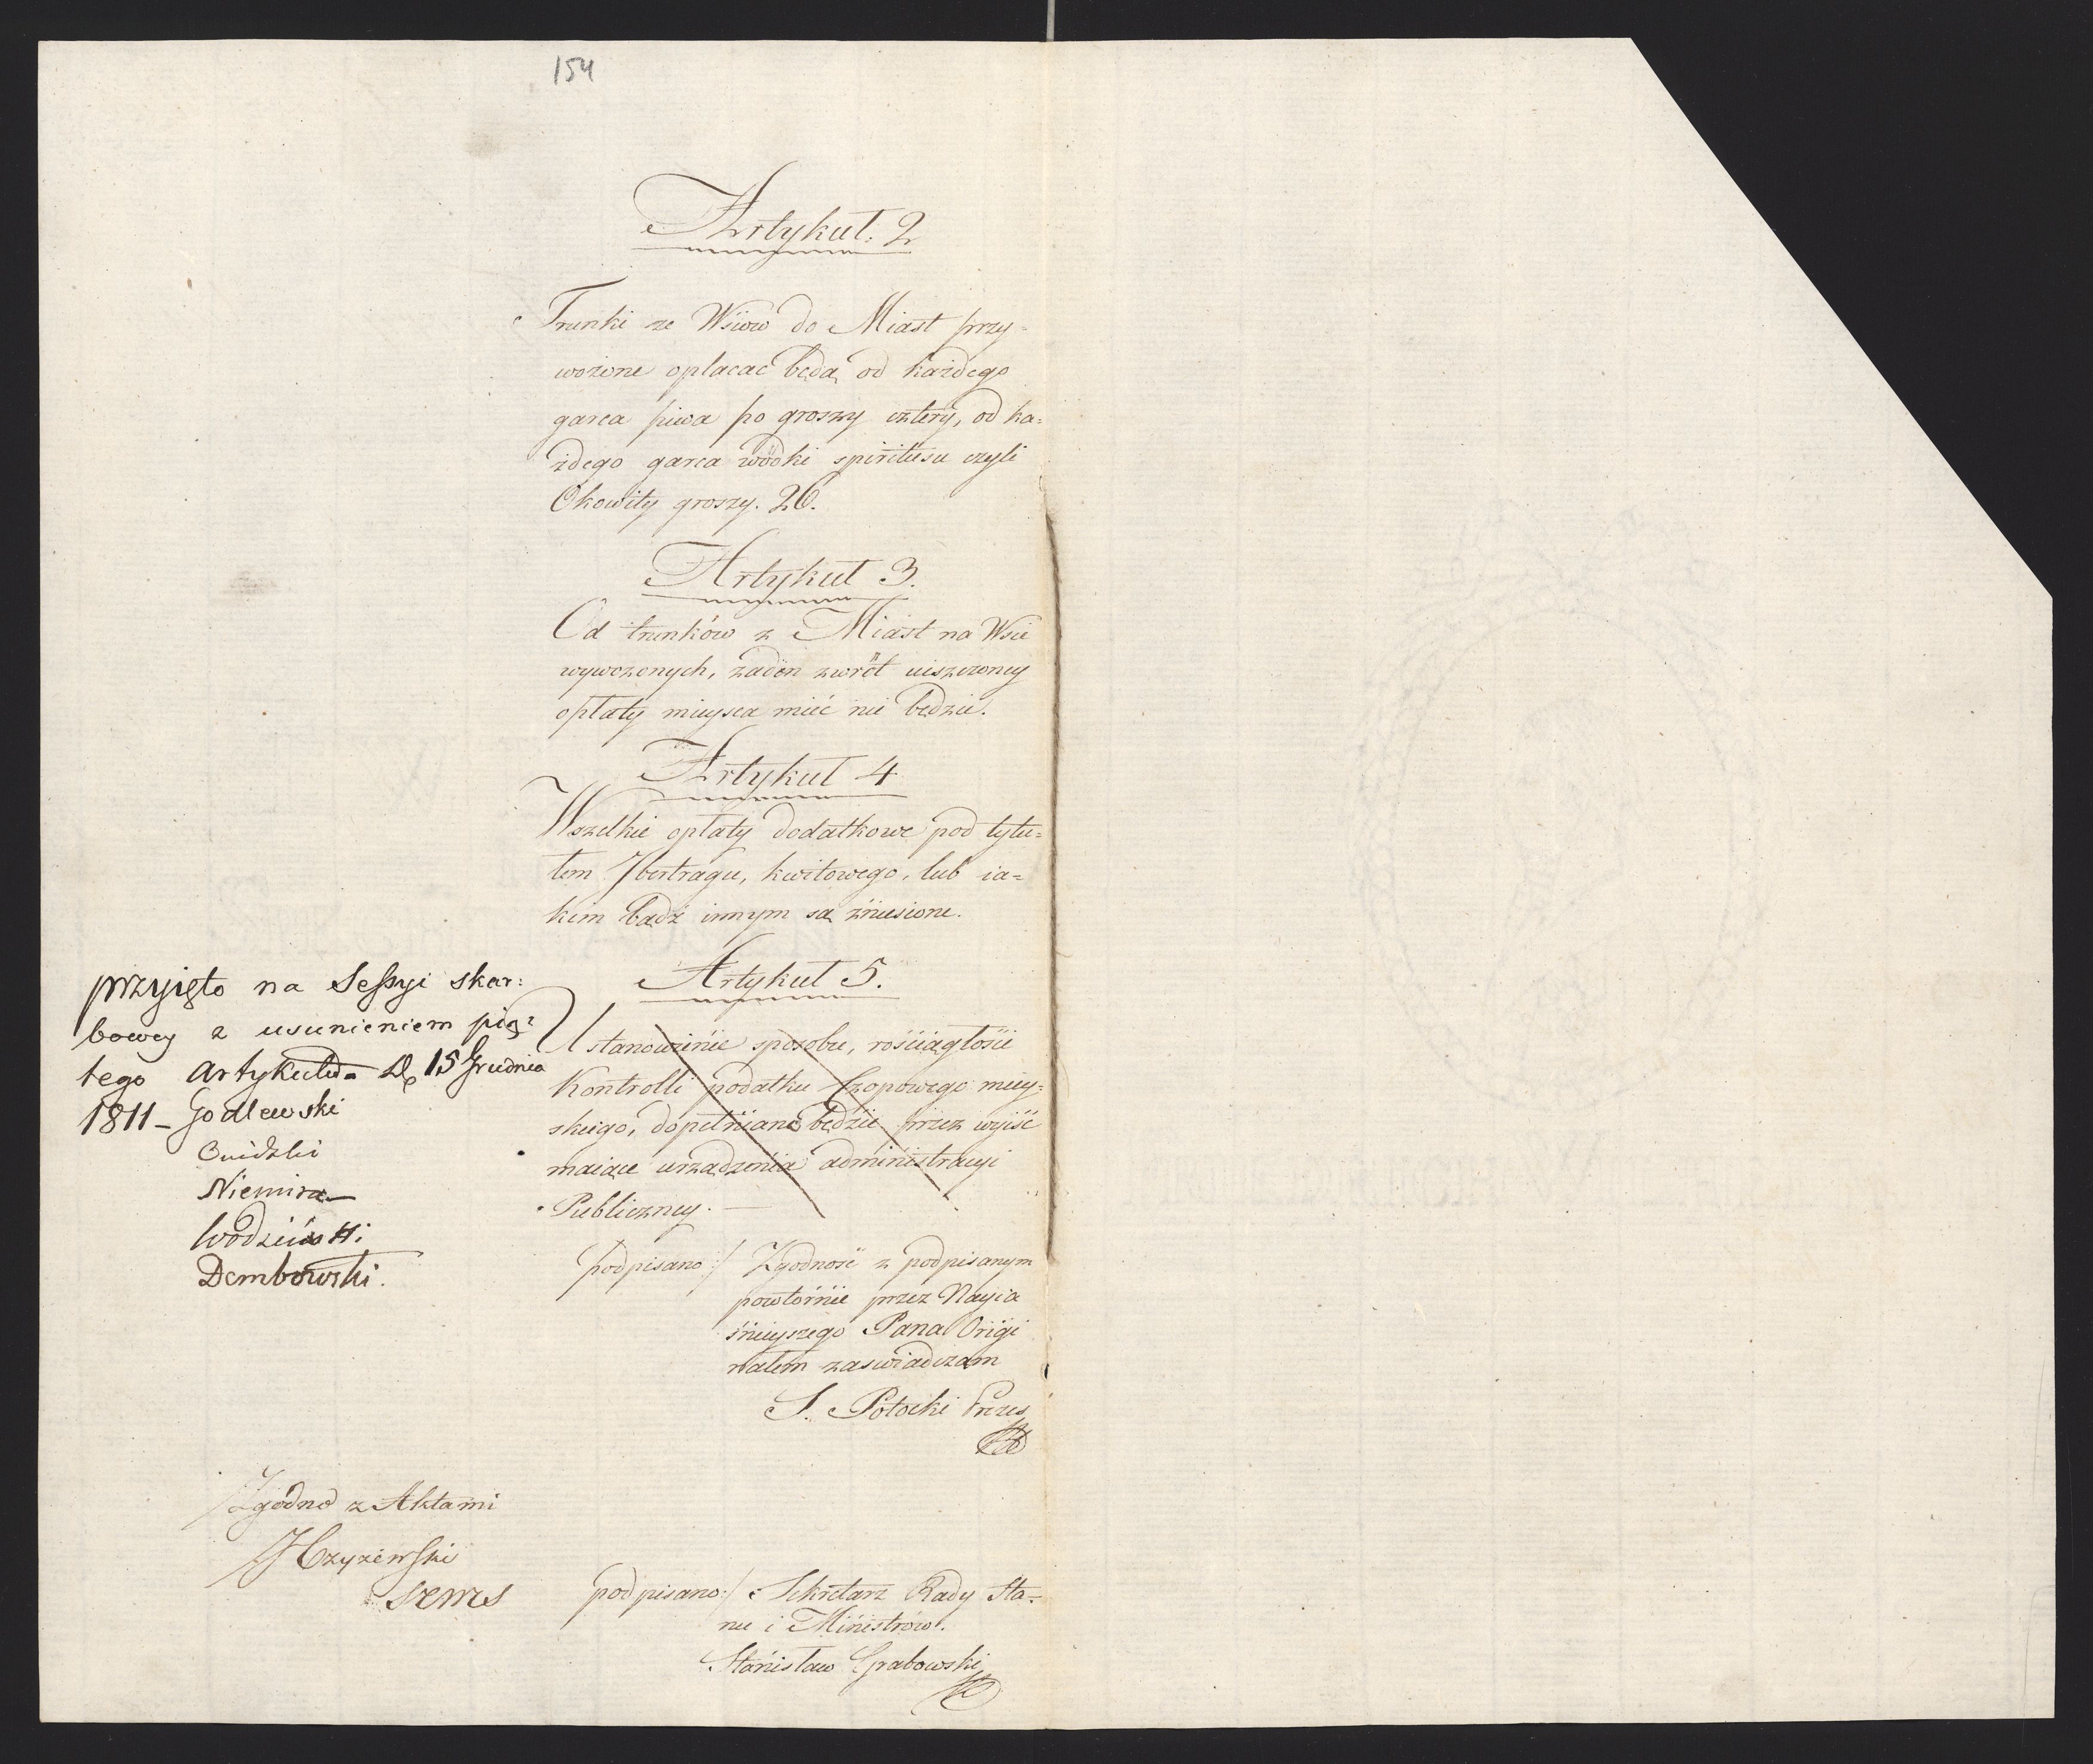 154
Artykuł. 2
Trunki ze Wsiow do Miast przy=
wożone opłacać będą od każdego
garca piwa po groszy cztery, od ka=
żdego garca wódki spiritusu czyli
Okowity groszy. 26.
Artykuł 3.
Od trunków z Miast na Wsie
wywożonych, żadён zwrót uiszczoney
opłaty mieysca mieć nie będzie.
Artykuł 4
Wszelkie opłaty dodatkowe pod tytu=
łem Ibertragu, kwitowego, lub ia=
kim bądź innym są zniesione.
Artykuł 5.
Ustanowienie sposobu, rościągłości
Kontrolli podatku Czopowego miey=
skiego, dopełniane będzie przez wyiść
maiące urządzenia administracyi
Publiczney. —
podpisano:/ Zgodność z podpisanym
powtórnie przez Nayia
śnieyszego Pana Origi
nałem zaswiadczam
S. Potocki Prezes
przyięto na Sessyi skar:
bowey z usunieniem pią=
tego Artykułu - D. 15 Grudnia
1811 - Godlewski
Niemira
Wodziński
Dembowski.
Zgodno z Aktami
Czyżewski
podpisano:/ Sekretarz Rady Sta=
nu i Ministrów.
Stanisław Grabowski